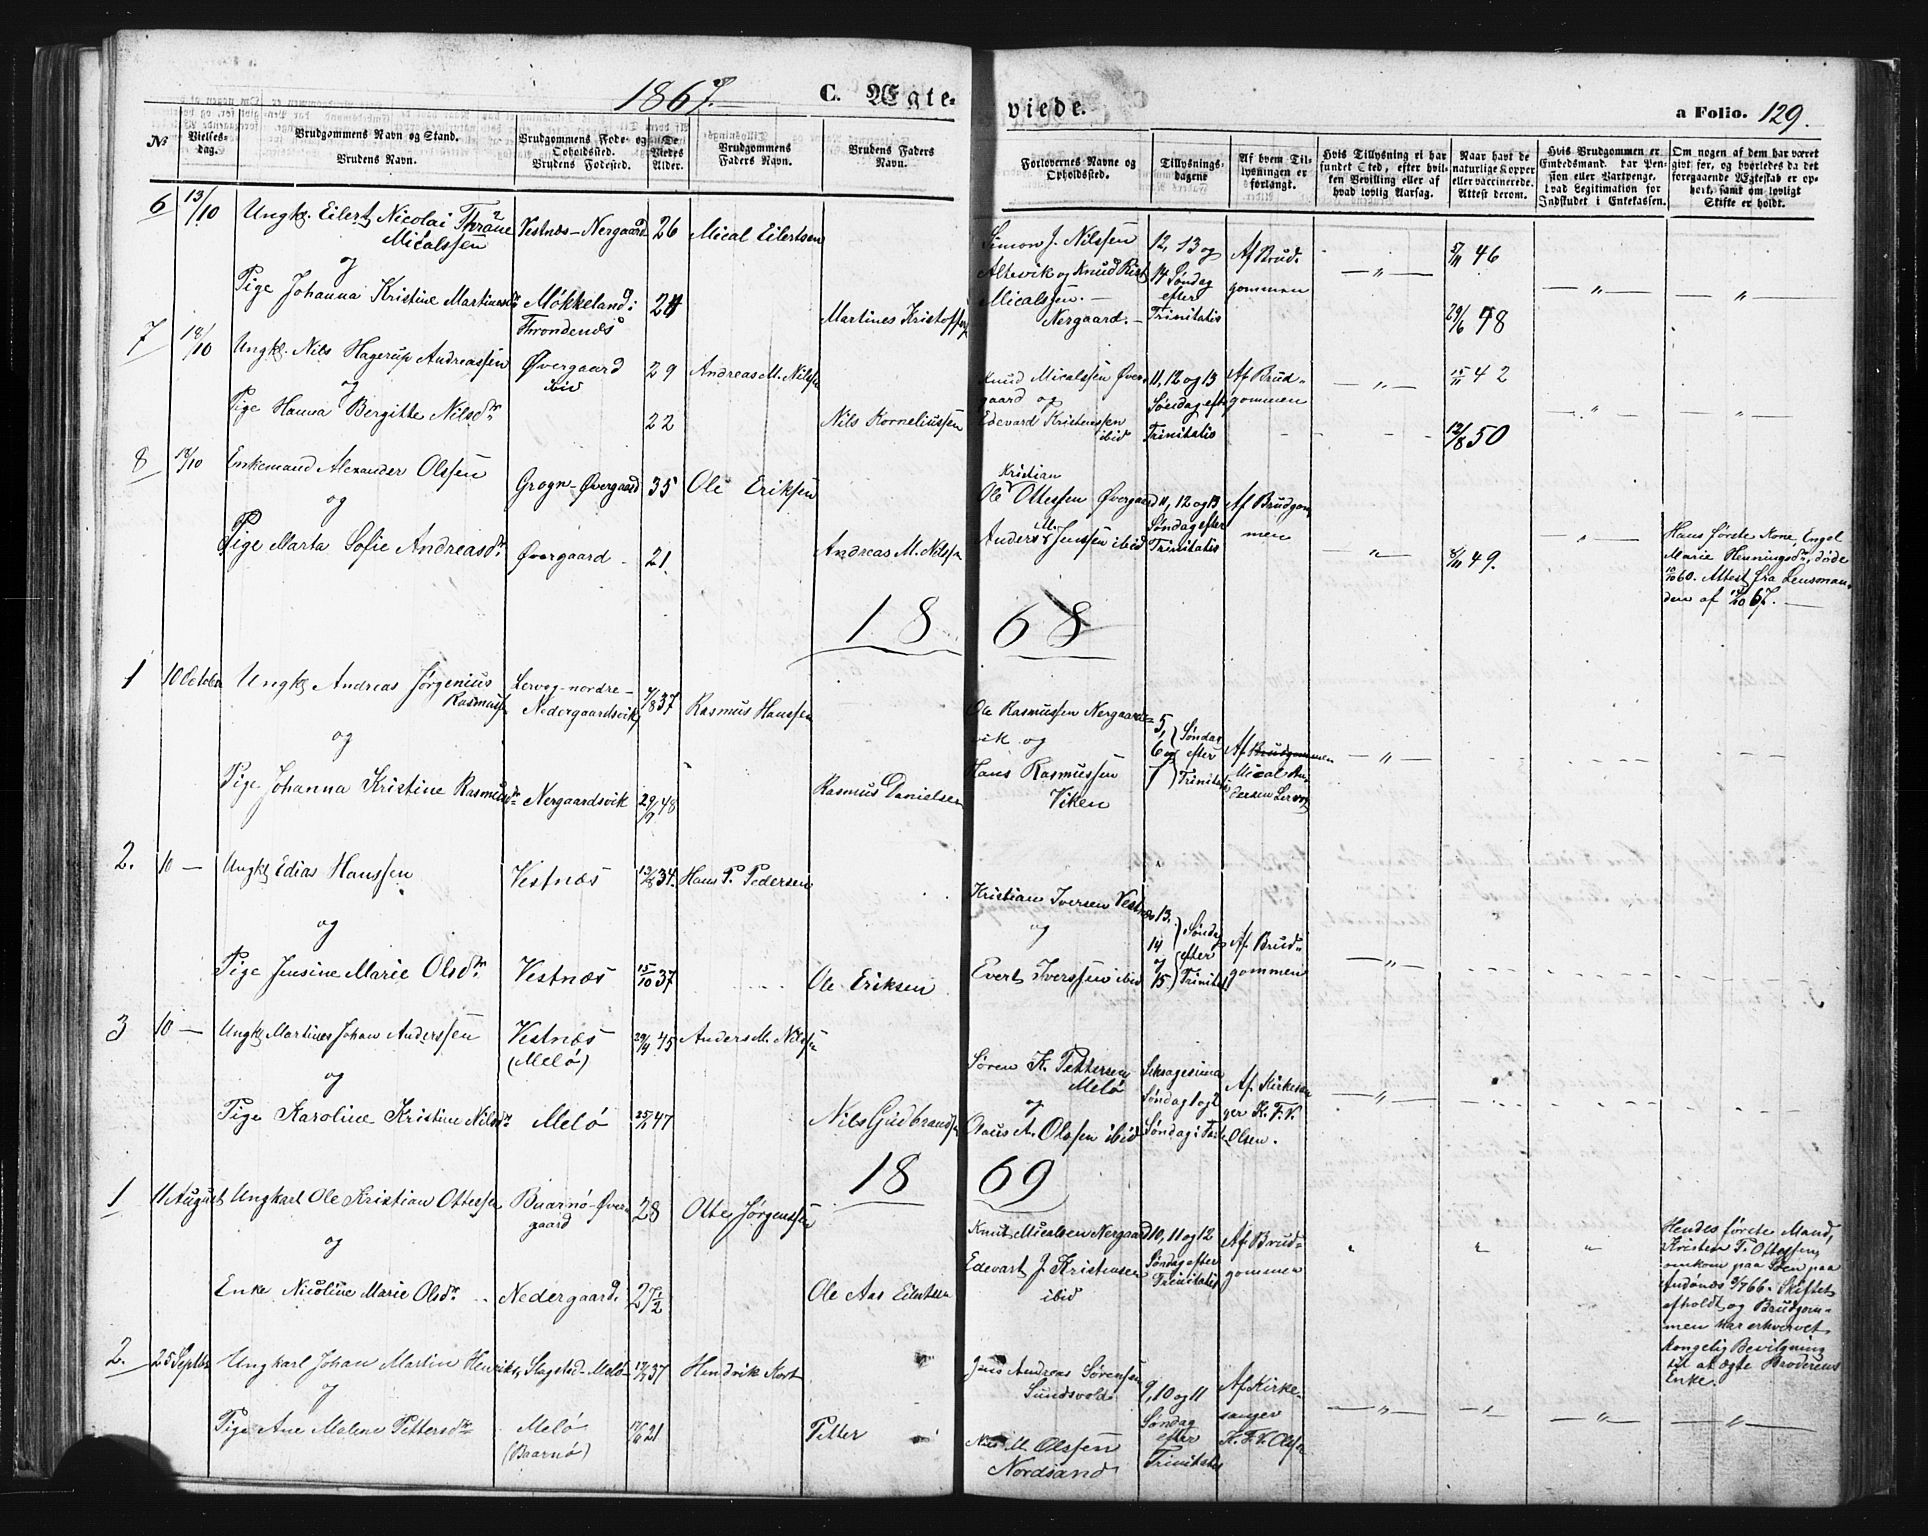 1867.
C. Ægte-
viede.
a Folio. 129.
№
Vielses-
dag.
Brudgommens Navn og Stand.
Brudens Navn.
Brudgommens Føde- og
Opholdssted.
Brudens Fødested.
De
Viedes
Alder.
Brudgommens
Faders Navn.
Brudens Faders
Navn.
Forlovernes Navne og
Opholdssted.
Tillysnings-
dagene
Af hvem Til-
lysningen er
forlangt.
Hvis Tillysning ei har
fundet Sted, efter hvil-
ken Bevilling eller af
hvad lovlig Aarsag.
Naar havt de
naturlige Kopper
eller vaccinerede.
Attest derom.
Hvis Brudgommen er
Embedsmand, har Pen-
sion eller Vartpenge,
hvad Legitimation for
Indskudet i Enkekassen.
Om nogen af dem har været
gift før, og hvorledes da det
foregaaende Ægteskab er op-
hørt, samt om lovligt
Skifte er holdt.
6 13/10 Ungk. Eilert Nicolai Thrane
Micalssen
Vestnæs-Nergaard 26 Mical Eilertsen
og
Pige Johanna Kristine Martinusdr
Møkkeland i
Throndenæs
24 Martines Kristoffers
Simon J. Nilssen
Altevik og Knud Rist
Micalssen.
Nergaard.
12, 13 og
14 Søndag
efter
Trinitatis
Af Brud-
gommen
— " —
5/11 46
29/6 48
— " — — " —
7 18/10 Ungk. Nils Hagerup Andreassen
og
Pige Hanna Bergitte Nilsdr
Øvergaard
ibid
29
22
Andreas M. Nilssen
Nils Korneliussen
Knud Micalssen Øver-
gaard og
Edevard Kristenssen
ibid
11, 12 og 13
Søndag eft
Trinitatis
Af Brud-
gommen
— " —
15/11 42
12/8 50
— " — — " —
8 18/10 Enkemand Alexander Olssen
og
Pige Marta Sofie Andreasdr.
Grogn-Øvergaard
Øvergaard
35
21.
Ole Eriksen
Andreas M. Nilssen
Kristian
Ole Ottessen Øvergaard
M.
Anders Jenssen ibid
11, 12 og 13
Søndag efter
Trinitatis
Af Brudgom
men
— " —
8/11 49.
— " —
Hans første Kone, Engel
Marie Henningsdr, døde
10/10 60. Attest fra Lensman-
den af 67.
1868
1 10 October Ungk Andreas Jørgenius
Rasmuss
og
Pige Johanna Kristine Rasmusdr
Lervog-nordre-
Nedergaardsvik
Nergaardsvik
7/8 37
29/7 48
Rasmus Hanssen
Rasmus Danielsen
Ole Rasmussen Nergaards-
vik og
Hans Rasmussen
Viken
5,
6 og
7
Søndag
efter
Trinitatis
Af Brudgommen
Mical An-
dersen Lervog
— " —
2. 10 — Ungk Edias Hanssen
og
Pige Jensine Marie Olsdr.
Vestnæs
Vestnæs
34.
15/10 37
Hans P. Pedersen
Ole Eriksen
Kristian Iversen Vestnæs
og
Evert Iverssen ibid
13.
14
og
15
Søndag
efter
Trinitat
Af Brud-
gommen
— " —
3 10 — Ungk Martines Johan Anderssen
og
Pige Karoline Kristine Nilsdr
Vestnæs
(Melø)
Melø
29/4 45
47
Anders M. Nilssen
Nils Gudbrandsen
Søren K. Pettersen
Melø
og
Claus A. Olssen ibid
Seksagesima
Søndag 1 og 2
Søndag i Faste
Af Kirkesan
ger K. F. V.
Olsen.
— " —
1869
1 11 August Ungkarl Ole Kristian Ottessen
og
Enke Nicoline Marie Olsdr.
Baarnø-Øver-
gaard
Nedergaard.
28
27 1/2
Otte Jørgenssen
Ole Aas Eilertsen
Knut Micalsen Nergaard
Edevart J. Kristensen
ibid
10, 11 og 12
Søndag efter
Trinitatis
Af Brud-
gommen
" " "
Hendes første Mand,
Kristen T. Ottessen,
omkom paa Søen paa
Andønæs 66. Skiftet
afholdt og Brudgom-
men har erhvervet
kongelig Bevilgning
til at ægte Broderens
Enke.
2. 25 Septbr Ungkarl Johan Martin Henriks
og
Pige Ane Malene Pettersdr
Slagstad-Melø-
Melø
(Baarnø)
37
21
Hendrik Kort
Petter
Jens Andreas Sørensen
Sundsvold
Nils M. Olssen
Nordsand
9, 10 og 11
Søndag
efter
Trinitatis
Af Kirke-
sanger
K. F. V. Olsen
— " — — " — — " — — " —